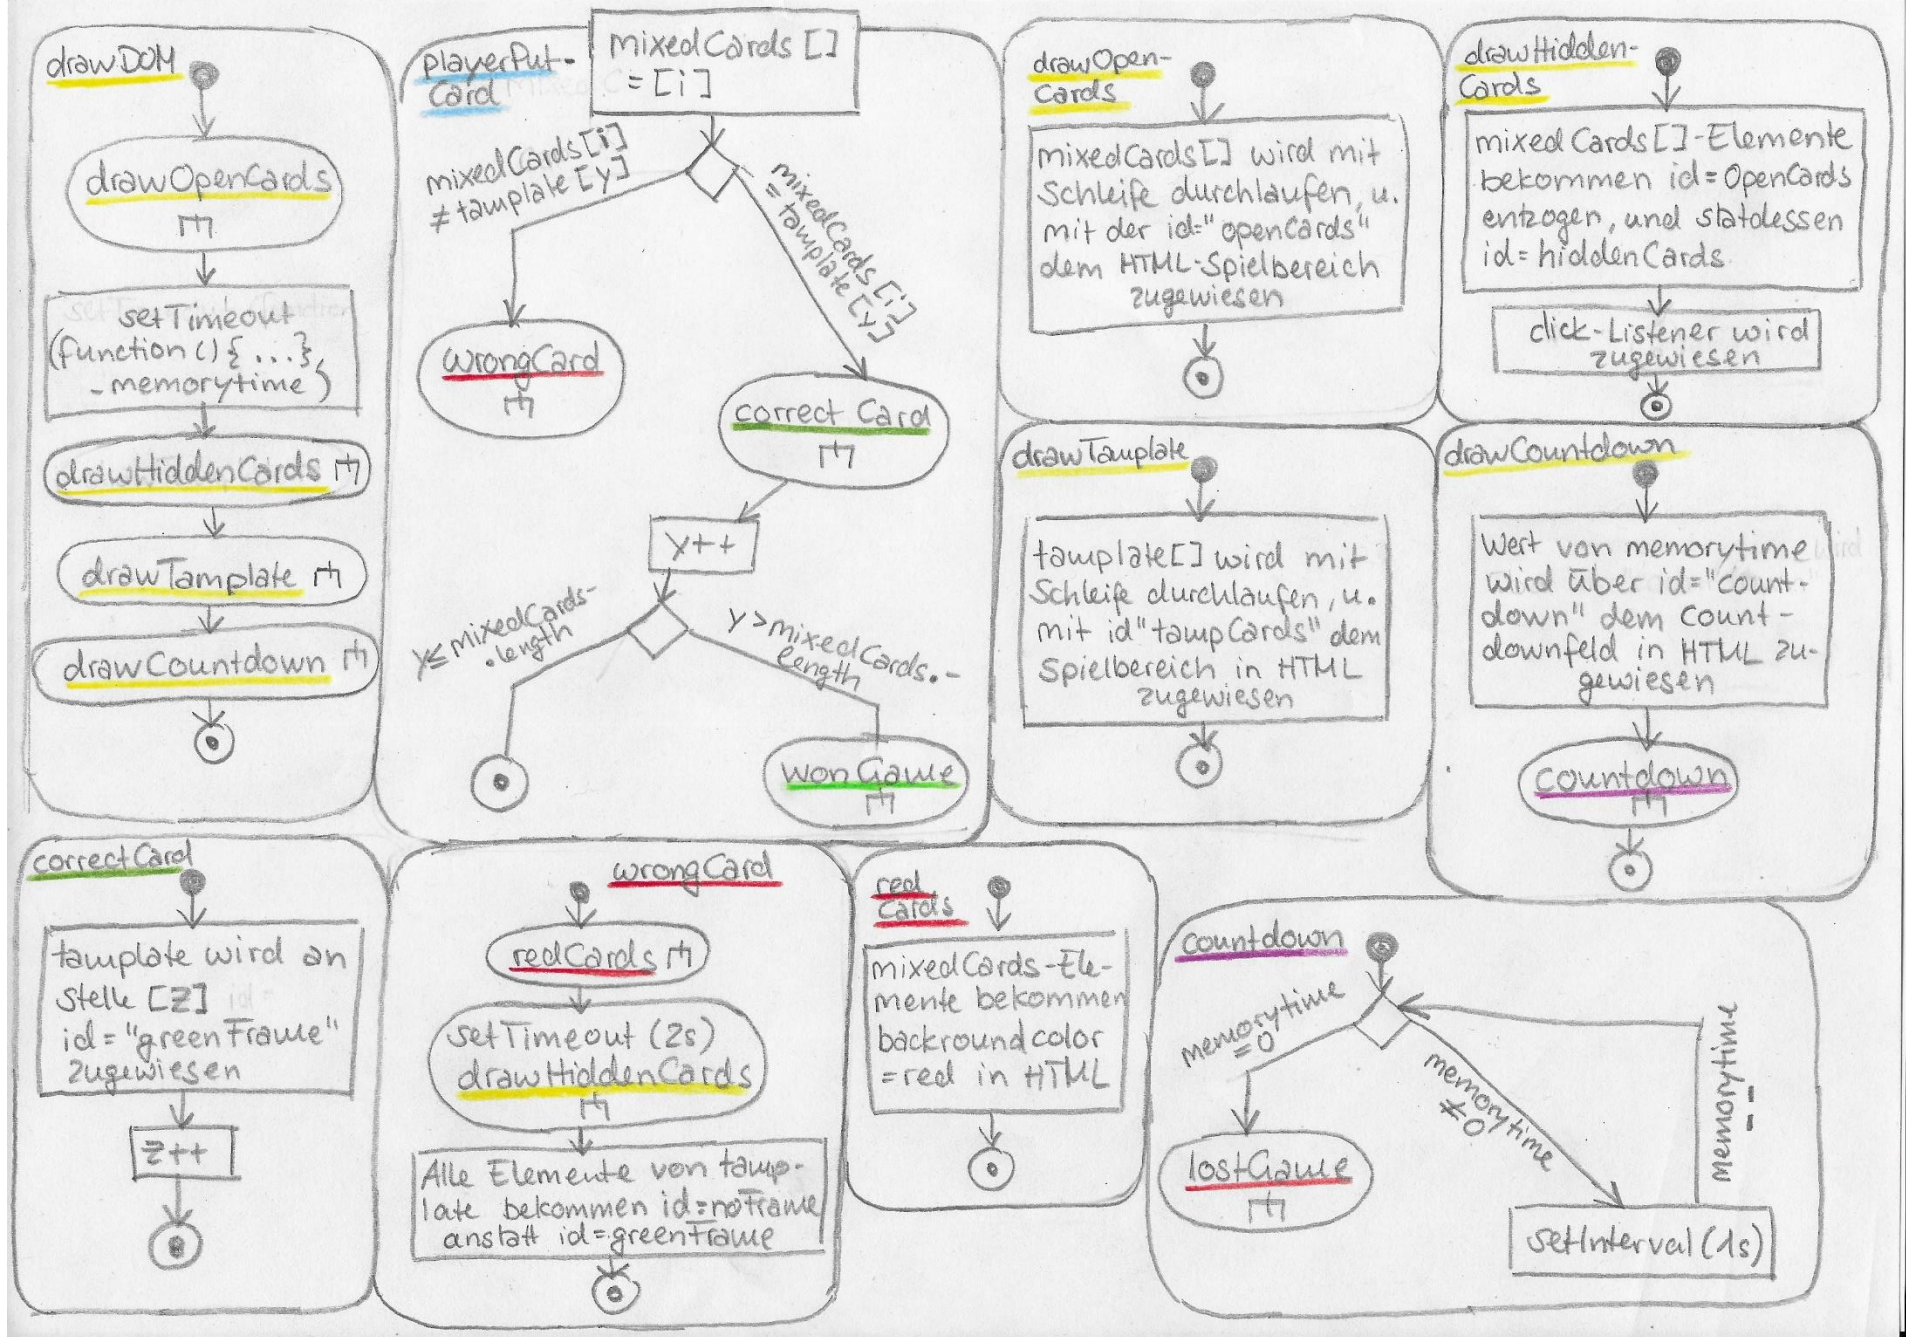 drawDOM
drawOpenCards
setTimeout
(function(){...},
-memorytime)
drawHiddenCards
drawTamplate
drawCountdown
playerPut-
Card
mixedCards[]
=[i]
mixedCards[i]
≠tamplate[y]
mixedCards[i]
=tamplate[y]
wrongCard
correct Card
y++
y≤mixedCards-
.length
y>mixedCards.-
length
wonGame
drawOpen-
Cards
mixedCards[] wird mit
Schleife durchlaufen, u.
mit der id="openCards"
dem HTML-Spielbereich
zugewiesen
drawHidden-
Cards
mixedCards[]-Elemente
bekommen id=OpenCards
entzogen, und statdessen
id=hiddenCards
click-Listener wird
zugewiesen
drawTamplate
tamplate[] wird mit
Schleife durchlaufen, u.
mit id"tampCards" dem
Spielbereich in HTML
zugewiesen
drawCountdown
Wert von memorytime
wird über id="count-
down" dem Count-
downfeld in HTML zu-
gewiesen
countdown
correctCard
tamplate wird an
Stelle [z]
id="greenFrame"
zugewiesen
z++
wrongCard
redCards
setTimeout (2s)
drawHiddenCards
Alle Elemente von tamp-
late bekommen id=noFrame
anstatt id=greenFrame
red
Cards
mixedCards-Ele-
mente bekommen
backroundcolor
=red in HTML
countdown
memorytime
=0
memorytime
≠0
memorytime
--
lostGame
setInterval(1s)